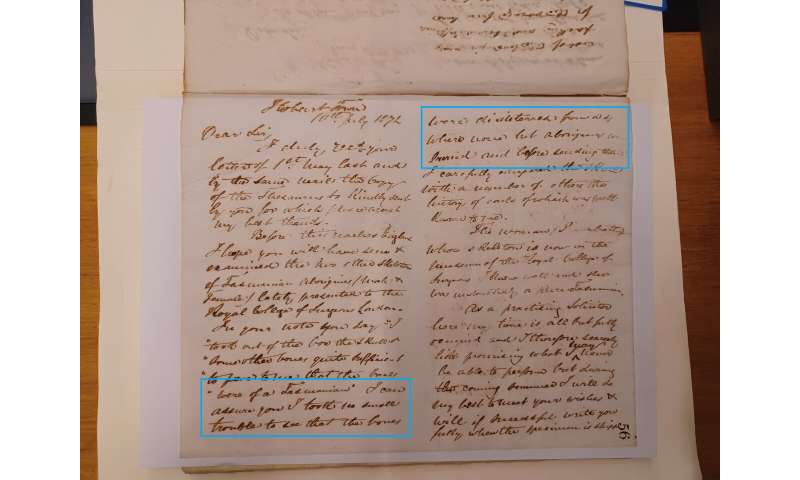 Hobart Town
11th July 1872
Dear Sir,
I duly rec'd your
letter of 1st May last and
by the same mail the copy
of the Thesaurus so kindly sent
by you for which / please accept
my best thanks.
Before this reaches England
I hope you will have seen &
examined the two other Skeletons
of Tasmanian Aborigines / Male &
Female / lately presented to the
Royal College of Surgeons London.
In your note you say "I
"took out of the box the skull &
"some other bones quite sufficient
"to prove to me that the bones
"were of a Tasmanian" I can
assure you I took no small
trouble to see that the bones
were disinterred from
where none but aborigines
buried and before sending them
I carefully compared the Skull
with a number of others the
history of each of which was well
known to me.
The woman
whose skeleton is now in the
Museum of the Royal College of
Surgeons I knew well and she
was undoubtedly a pure Tasmanian.
As a practising Solicitor
here my time is all but fully
occupied and I therefore scarcely
like promising what I may
be able to perform but during
the coming summer I will do
my best to meet your wishes &
will if successful write you
fully when the specimen is
56